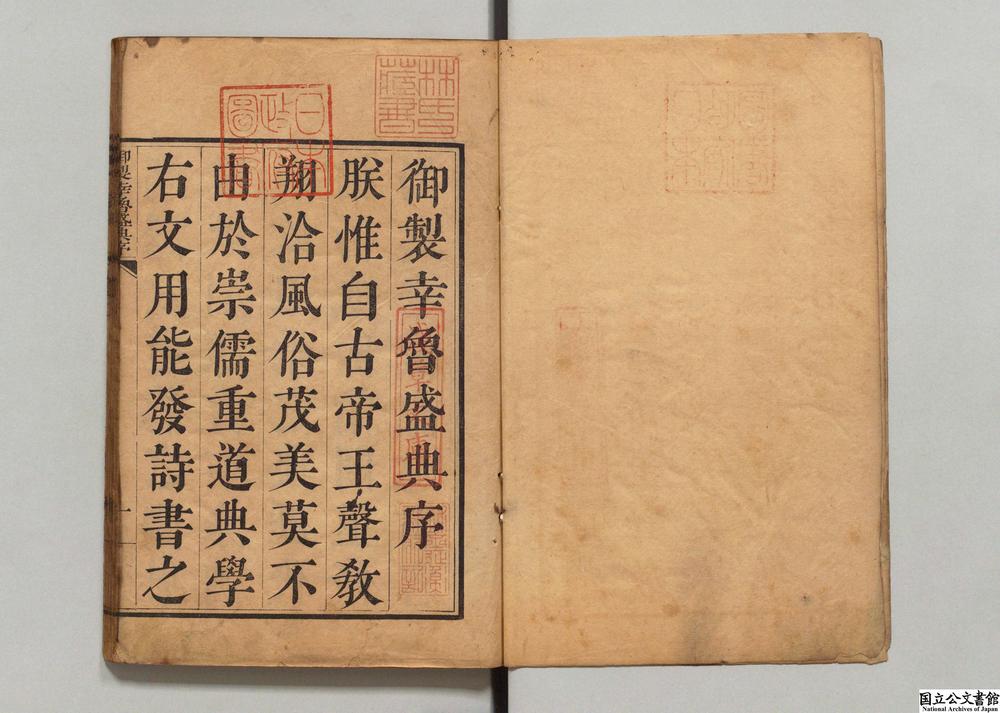 御製幸魯盛典序
朕惟自古帝王聲教
翔洽風俗茂美莫不
由於崇儒重道典學
右文用能發詩書之
御製幸魯盛典序
一
林氏藏書
日本政府圖書
国立公文書館
National Archives of Japan